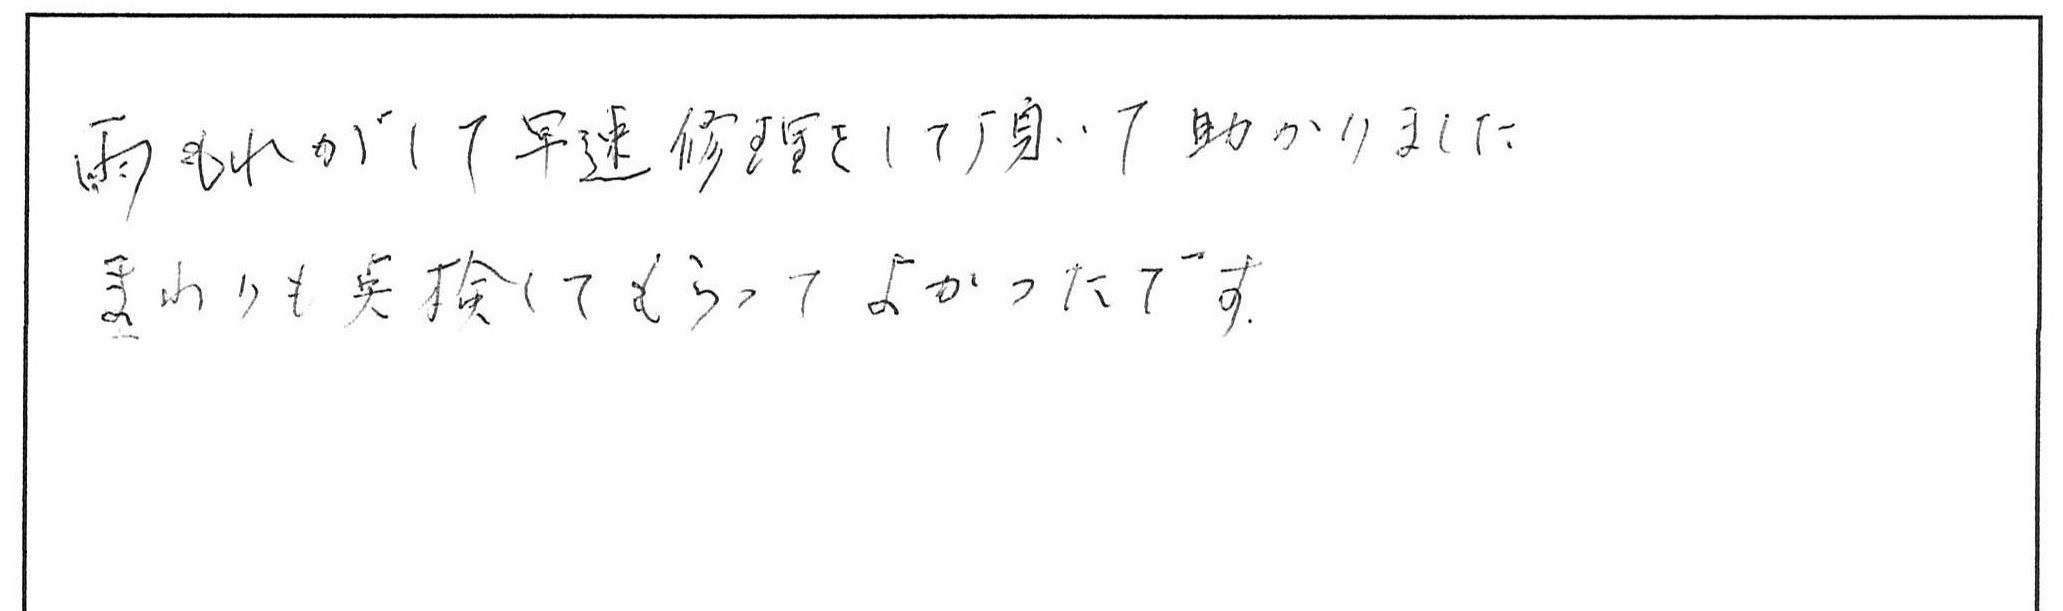 雨もれがして早速修理をして頂いて助かりました
まわりも点検してもらってよかったです.